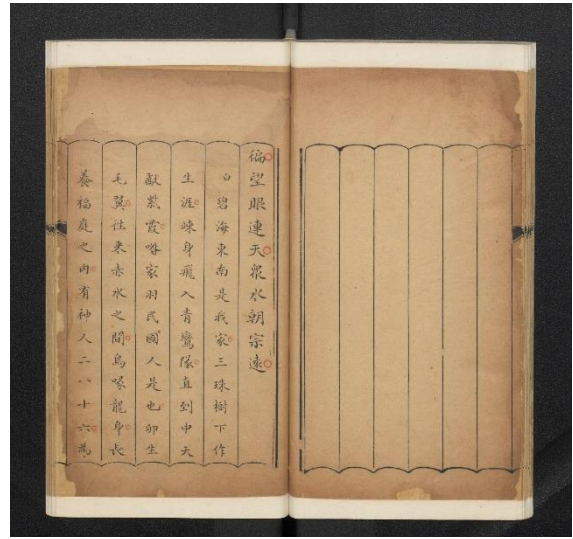 徧望眼連天衆水朝宗遠
白碧海東南是我家三珠樹下作
生涯竦身飛入青鸞隊直到中天
獻紫霞喒家羽民國人是也卵生
毛翼往来赤水之間鳥喙龍身長
養福庭之内有神人二八十六為